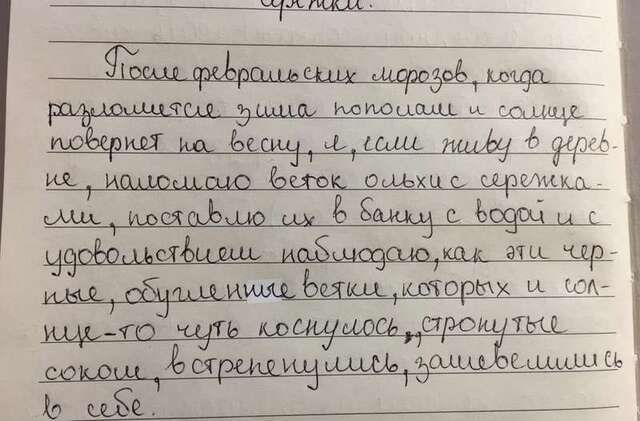 После февральских морозов, когда
разломится зима пополам и солнце
повернет на весну, я, если живу в дерев-
не, наломаю веток ольхи с сережка-
ми, поставлю их в банку с водой и с
удовольствием наблюдаю, как эти чер-
ные, обугленные ветки, которых и сол-
нце-то чуть коснулось, стронутые
соком, встрепенулись, зашевелились
в себе.